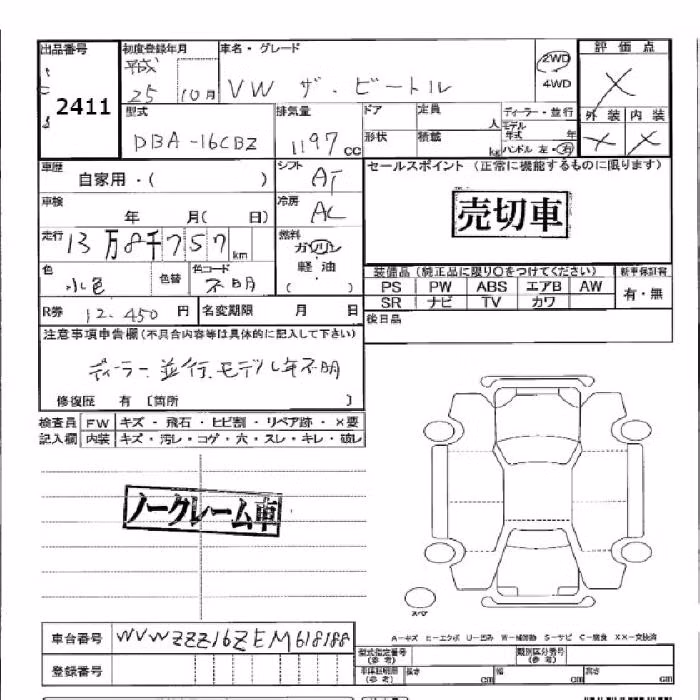 出品番号 初度登録年月 車名・グレード 評価点
2411 平成25 10月 VW ザ・ビートル 2WD 4WD X
外装 内装
X X
型式 排気量 ドア 定員 人 ディーラー・並行
DBA-16CBZ 1197cc 形状 積載 kg モデル年式 年
ハンドル 左・右
車歴 シフト セールスポイント (正常に機能するものに限ります)
自家用・( ) AT
車検 冷房 売切車
年 月( 日) AC
走行 燃料
13万8千757km ガソリン
軽・油
( )
色 色替 色コード 装備品 (純正品に限り○をつけてください) 新車保証書
水色 不明 PS PW ABS エアB AW 有・無
SR ナビ TV カワ
R券 12,450 円 名変期限 月 日 後日品
注意事項申告欄(不具合内容等は具体的に記入して下さい)
ディーラー、並行、モデル年不明
修復歴 有 [箇所 ]
検査員 FW キズ・飛石・ヒビ割・リペア跡・×要
記入欄 内装 キズ・汚レ・コゲ・穴・スレ・キレ・破レ
ノークレーム車
スペア
A-キズ E-エクボ U-凹み W-補修跡 S-サビ C-腐食 XX-交換済
車台番号 WVWZZZ16ZEM618188
型式指定番号 (参考) 類別区分番号 (参考)
登録番号 (参考) 長さ cm 幅 cm 高さ cm